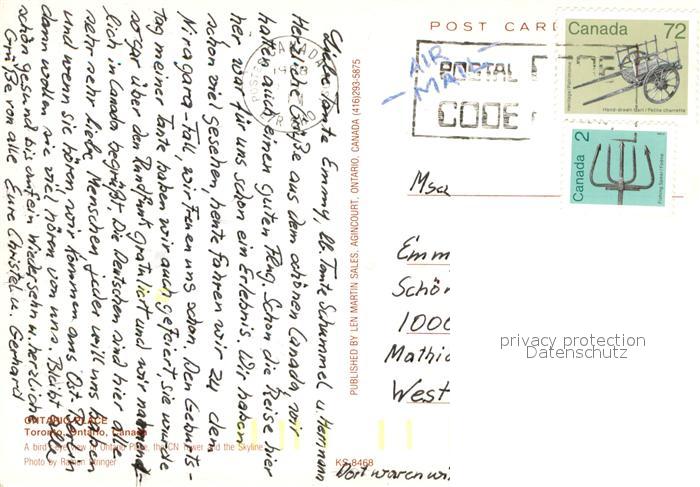 Liebe Tante Emmy, lb. Tante Schummel u. Hoffmann
Herzliche Grüße aus dem schönen Canada, wir
hatten auch einen guten Flug. Schon die Reise hier
her, war für uns schon ein Erlebnis. Wir haben
schon viel gesehen, heute fahren wir zu den
Niragara-Fall, wir freuen uns schon. Den Geburts-
tag meiner Tante haben wir auch gefeiert sie wurde
sogar über den Rundfunk gratuliert und wir
lich in Canada begrüßt. Die Deutschen sind hier alle
sehr sehr liebe Menschen jeder will uns
und wenn sie hören, wir kommen aus Ost
dann wollen sie viel hören von uns. Bleibt alle
schön gesund bis auf ein Wiedersehn u. herzliche
Grüße von alle Eure Christel u. Gerhard
ONTARIO PLACE
Toronto, Ontario, Canada
A bird's eye view of Ontario Place, the CN Tower and the Skyline
Photo by Ramon Stringer
KS-8468
PUBLISHED BY LEN MARTIN SALES, AGINCOURT, ONTARIO, CANADA (416)293-5875
POST CARD
AIR
MAIL
POSTAL CODE
CODE
CANADA
Canada 72
Heritage / Patrimoine
Hand-drawn Cart / Petite charrette
Canada 2
Fishing Spear / Foëne
Emm
Schön
1000
Mathie
West
Dort waren wi
privacy protection
Datenschutz